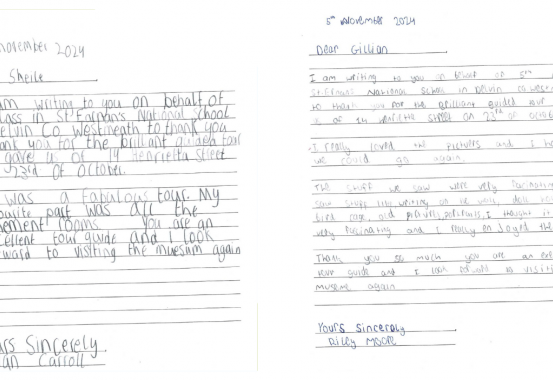 november 2024
Sheile
am writing to you on behalf of
lass in St Farnan's National School
elvin Co Westmeath to thank you
ank you for the brillant guided tour
gave us of 14 Henrietta Street
23rd of October.
was a fabulous tour. My
ourite part was all the
nement rooms. you are an
cellent tour guide and I look
ward to visiting the muesum again
urs Sincerely
an Carroll
5th November 2024
Dear Gillian
I am writing to you on behalf of 5th
National School in Delvin Co Westm
to thank you for the brilliant guided tour
of 14 Henrietta Street on 23rd of octob
I really loved the pictures and I h
we could go again.
The stuff we saw were very
saw stuff like writing on the wall, doll
bird cage, old I thought it
very and I really en Joyed the
Thank you so much you are an exe
tour guide and I look forward to visiti
museme again
Yours Sincerely
Rilly Moore